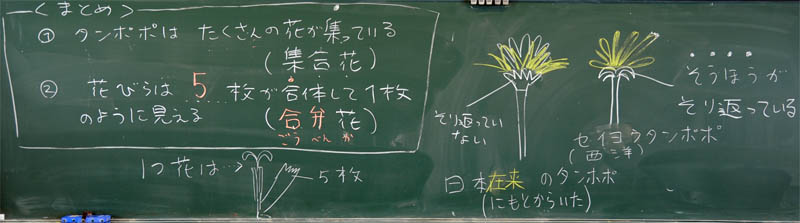 ＜まとめ＞
① タンポポは たくさんの花が集っている
(集合花)
② 花びらは 5 枚が合体して1枚
のように見える (合弁花)
ごうべんか
1つ花は…→
5枚
そり返ってい
ない
日本在来 のタンポポ
(にもとからいた)
そうほうが
そり返っている
セイヨウタンポポ
(西洋)